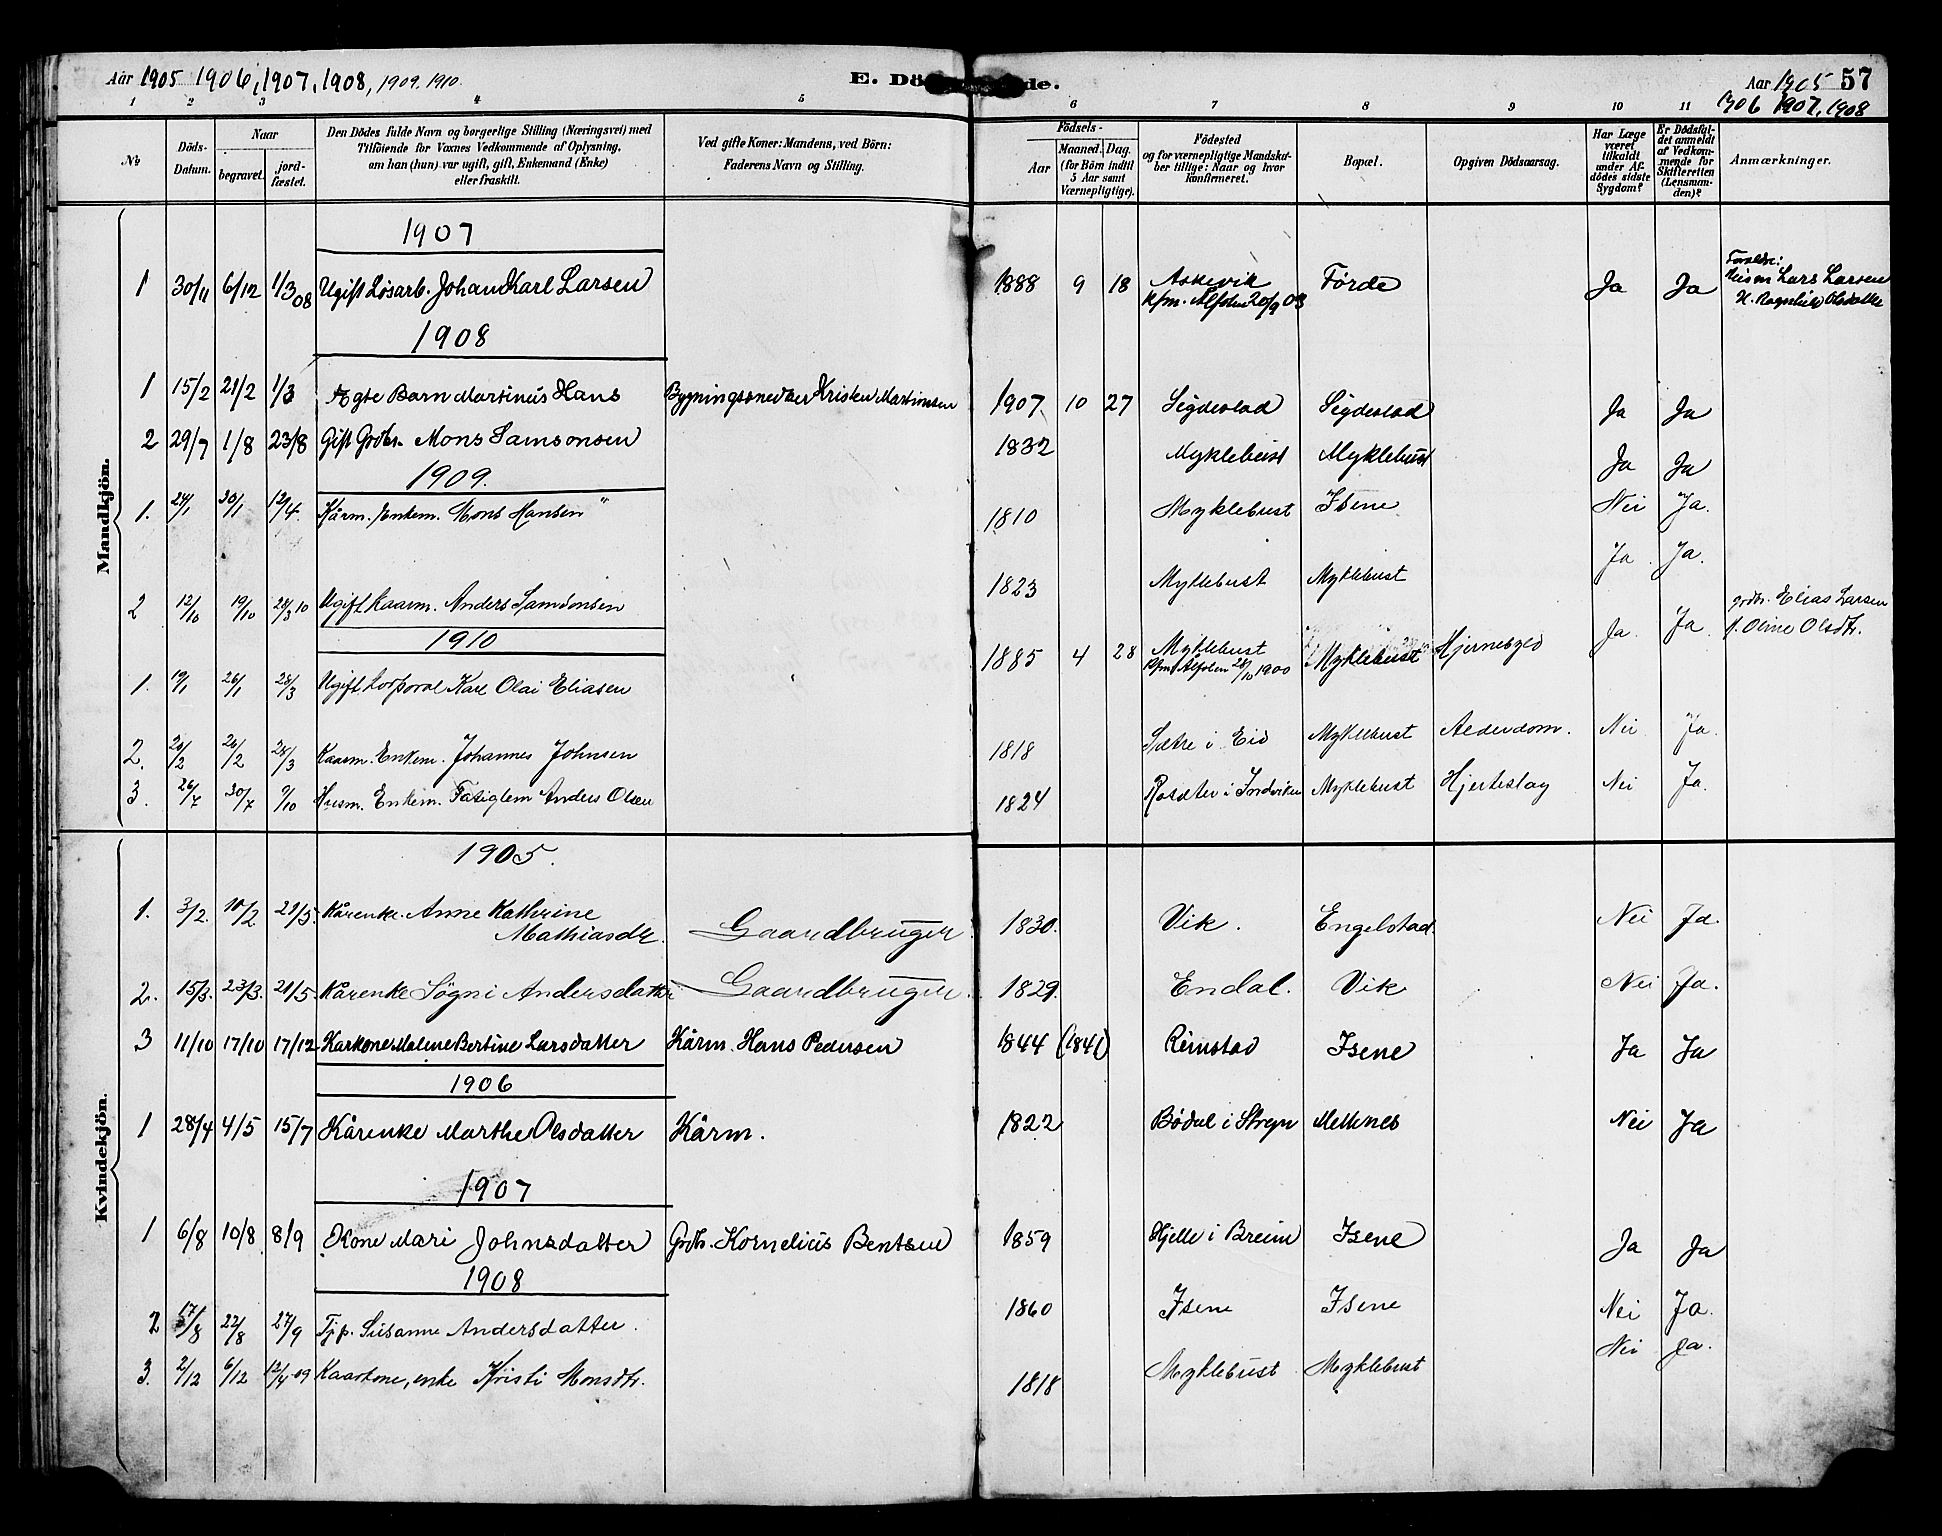 Aar 1905 1906, 1907, 1908, 1909. 1910.
E. Dö de.
Aar 1905 57
1906 1907, 1908
1 2 3 4 5 6 7 8 9 10 11
No
Döds-Datum.
Naar
begravet.
jord-fæstet.
Den Dödes fulde Navn og borgerlige Stilling (Næringsvei) med
Tilföiende for Voxnes Vedkommende af Oplysning,
om han (hun) var ugift, gift, Enkemand (Enke)
eller fraskilt.
Ved gifte Koner: Mandens, ved Börn:
Faderens Navn og Stilling.
Födsels-
Aar
Maaned. Dag.
(for Börn indtil
5 Aar samt
Værnepligtige).
Födested
og for værnepligtige Mandska-
ber tillige: Naar og hvor
konfirmeret.
Bopæl.
Opgiven Dödsaarsag.
Har Læge
været
tilkaldt
under Af-
dödes sidste
Sygdom?
Er Dödsfal-
det anmeldt
af Vedkom-
mende for
Skifteretten
(Lensman-
den)?
Anmærkninger.
Mandkjön.
1907
1 30/11 6/12 1/3 08 Ugift Løsarb. Johan Karl Larsen 1888 9 18 Askevik Förde Ja Ja
Kfm. Alfoten 20/9 03
Foræld:
Husm Lars Larsen
H. Ragnhild Olsdatter
1908
1 15/2 21/2 1/3 Ægte Barn Martinus Hans Bygningssnedker Kristen Martinsen 1907 10 27 Sigdestad Sigdestad Ja Ja
2 29/7 1/8 23/8 Gift Grdbr. Mons Samsonsen 1832 Myklebust Myklebust Ja Ja
1909.
1. 24/1 30/1 12/4. Kårm. Enkem. Mons Hansen 1810 Myklebust Isene Nei Ja.
2 12/10 19/10 28/3 10 Ugift Kaarm. Anders Samsonsen 1823 Myklebust Myklebust Ja Ja.
1910
1. 19/1 26/1 28/3 Ugift Korporal Karl Olai Eliasen 1885 4 28 Myklebust Myklebust Hjernebyld Ja. Ja.
Kfm. Alfoten 28/10 1900
grdbr. Elias Larsen
Oline Olsdtr.
2. 20/2 26/2 28/3 Kaarm. Enkem. Johannes Johnsen 1818 Sætre i Eid Myklebust Alderdom. Nei Ja.
3. 26/7 30/7 9/10 Husm. Enkem. Fatiglem Anders Olsen 1824 Rosæter i Indviken Myklebust Hjerteslag Nei Ja.
Kvindekjön.
1905.
1. 3/2. 10/2 21/5. Kårenke. Anne Kathrine
Mathiasdtr. Gaardbruger 1830. Vik. Engelstad. Nei Ja.
2. 15/3. 23/3. 21/5 Kårenke Søgni Andersdatter Gaardbruger. 1829. Endal. Vik Nei Ja.
3 11/10 17/10 17/12 Karkone Malene Bertine Larsdatter Kårm. Hans Pedersen 1844 (1841) Rimstad Isene Ja Ja
1906
1 28/4 4/5 15/7 Kårenke Marthe Olsdatter Kårm. 1822 Bødal i Stryn Mettenes Nei Ja
1907
1 6/8 10/8 8/9 Kone Mari Johnsdatter Grdbr. Kornelius Bentsen 1859 Hjelle i Breim Isene Ja Ja
1908
2 17/8 22/8 27/9 Tjp. Susanne Andersdatter. 1860 Isene Isene Nei Ja.
3. 2/12 6/12 12/4 09 Kaarkone, enke Kristi Monsdtr. 1818 Myklebust Myklebust Nei Ja.